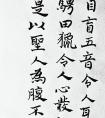 目盲五音令人耳
騁田獵令人心發
是以聖人為腹不